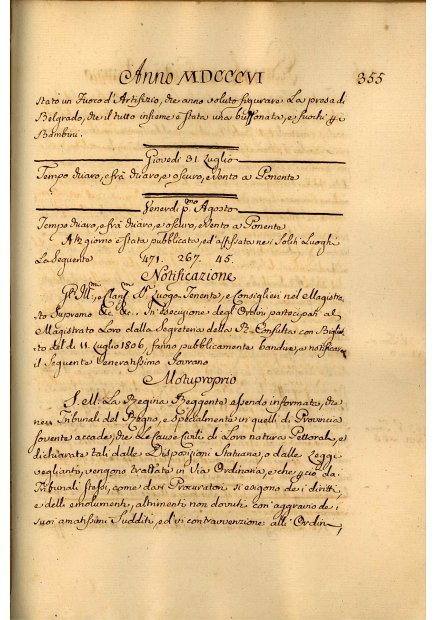 Anno MDCCCVI 355
stato un Fuoco d'Artifizio, che anno voluto figurare La presa di
Belgrado, che il tutto insieme è stata una buffonata, e fuochi
Bambini.
Giovedì 31 Luglio
Tempo chiaro, e frà chiaro, e oscuro, e Vento a Ponente
Venerdì p.mo Agosto
Tempo chiaro, e frà chiaro, e oscuro, e Vento a Ponente
giorno è stata pubblicata, ed affissata nei Soliti Luoghi
La Seguente 471. 267. 45.
Notificazione
Luogo Tenente, e Consiglieri nel Magistra,
to Supremo &c &c. In esecuzione degli Ordini partecipati al
Magistrato Loro dalla Segreteria della R. Consulta con Bigliet,
to del dì Luglio 1806, fanno pubblicamente bandire, e notificare
il Seguente Veneratissimo Sovrano
Motuproprio
S. M. La Regina Reggente essendo informata, che
nei Tribunali del Regno, e specialmente in quelli di Provincia
sovente accade, che Le Cause Civili di Loro natura Pettorali, e
dichiarate tali dalle Disposizioni Statuarie, o dalle Leggi
veglianti, vengono trattate in Via Ordinaria, e che da
Tribunali stessi, come dai Procuratori si esigono dei diritti,
e delli emolumenti, altrimenti non dovuti con aggravio dei
suoi amatissimi Sudditi, ed in contravvenzione all'Ordin,